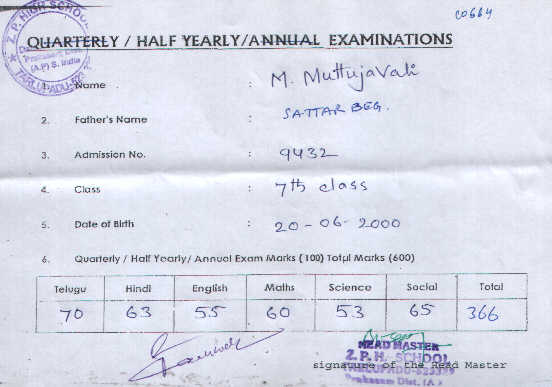 C0664
Z.P. HIGH SCHOOL
(A.P) S. India
TARLUPADU-523
QUARTERLY / HALF YEARLY/ANNUAL EXAMINATIONS
1. Name : M. Muttujavali
2. Father's Name : SATTAR BEG.
3. Admission No. : 9432
4. Class : 7th class
5. Date of Birth : 20-06-2000
6. Quarterly / Half Yearly/ Annual Exam Marks (100) Total Marks (600)
Telugu Hindi English Maths Science Social Total
70 63 55 60 53 65 366
HEAD MASTER
Z. P. H. SCHOOL
signature of the Head Master
Prakasam Dist. (A.